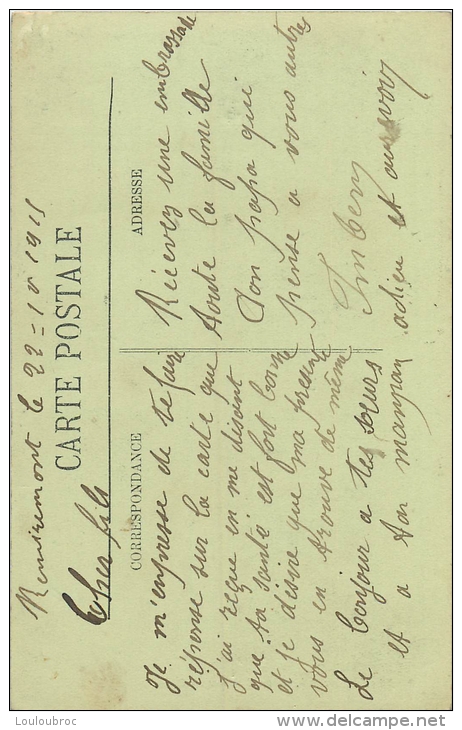 Remiremont le 22 = 10 1915
CARTE POSTALE
Cher fils
CORRESPONDANCE
ADRESSE
Je m'enpresse de te faire
réponse sur la carte que
j'ai reçue en me disent
que ta santé est fort bonne
et je désire que ma présente
vous en trouve de même
Le bonjour a tes sœurs
et a ton maman adieu et au revoir
Recevez une embrassade
toute la famille
Ton papa qui
pense a vous autre
Imbery
Louloubroc